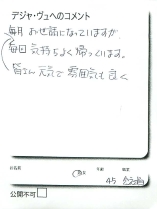 デジャ・ヴュへのコメント
毎月 お世話になっていますが、
毎回 気持ちよく帰っています。
皆さん 元気で 雰囲気も良く
お名前
男 女
年齢
職業
45
公開不可